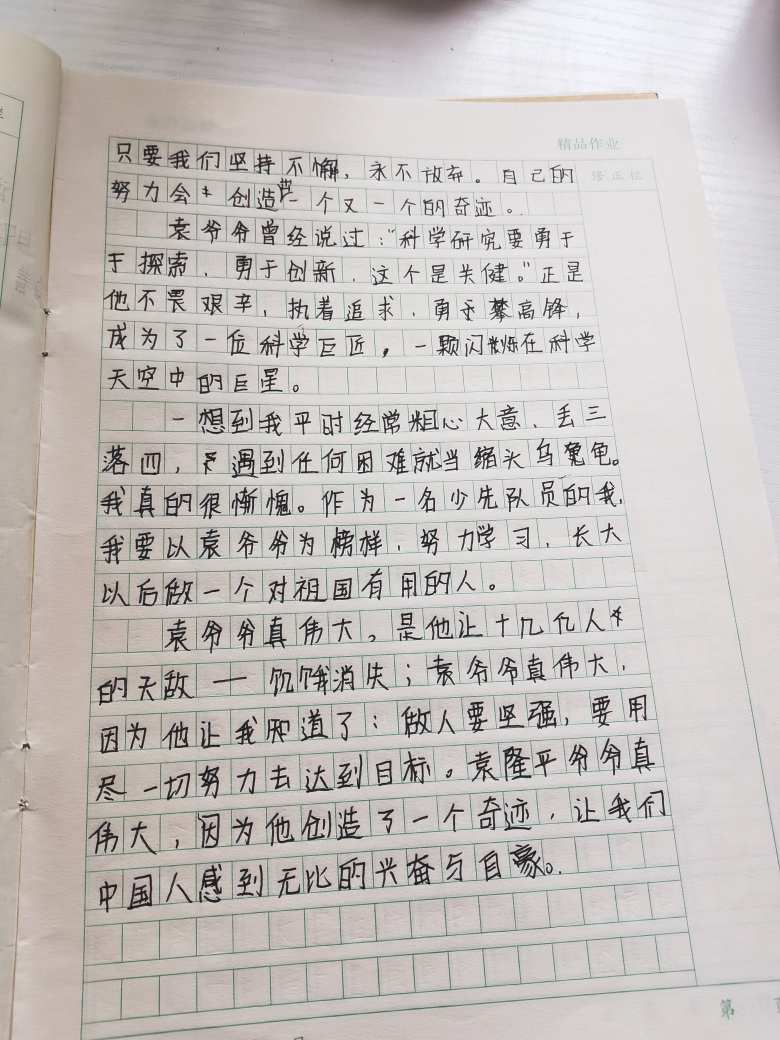 精品作业
修正栏
只要我们坚持不懈，永不放弃。自己的
努力会创造出一个又一个的奇迹。
袁爷爷曾经说过：“科学研究要勇于
于探索，勇于创新，这个是关健。”正是
他不畏艰辛，执着追求，勇于攀高锋，
成为了一位科学巨匠，一颗闪烁在科学
天空中的巨星。
一想到我平时经常粗心大意，丢三
落四，遇到任何困难就当缩头乌龟。
我真的很惭愧。作为一名少先队员的我，
我要以袁爷爷为榜样，努力学习，长大
以后做一个对祖国有用的人。
袁爷爷真伟大，是他让十几亿人
的天敌——饥饿消失；袁爷爷真伟大，
因为他让我知道了：做人要坚强，要用
尽一切努力去达到目标。袁隆平爷爷真
伟大，因为他创造了一个奇迹，让我们
中国人感到无比的兴奋与自豪。
第